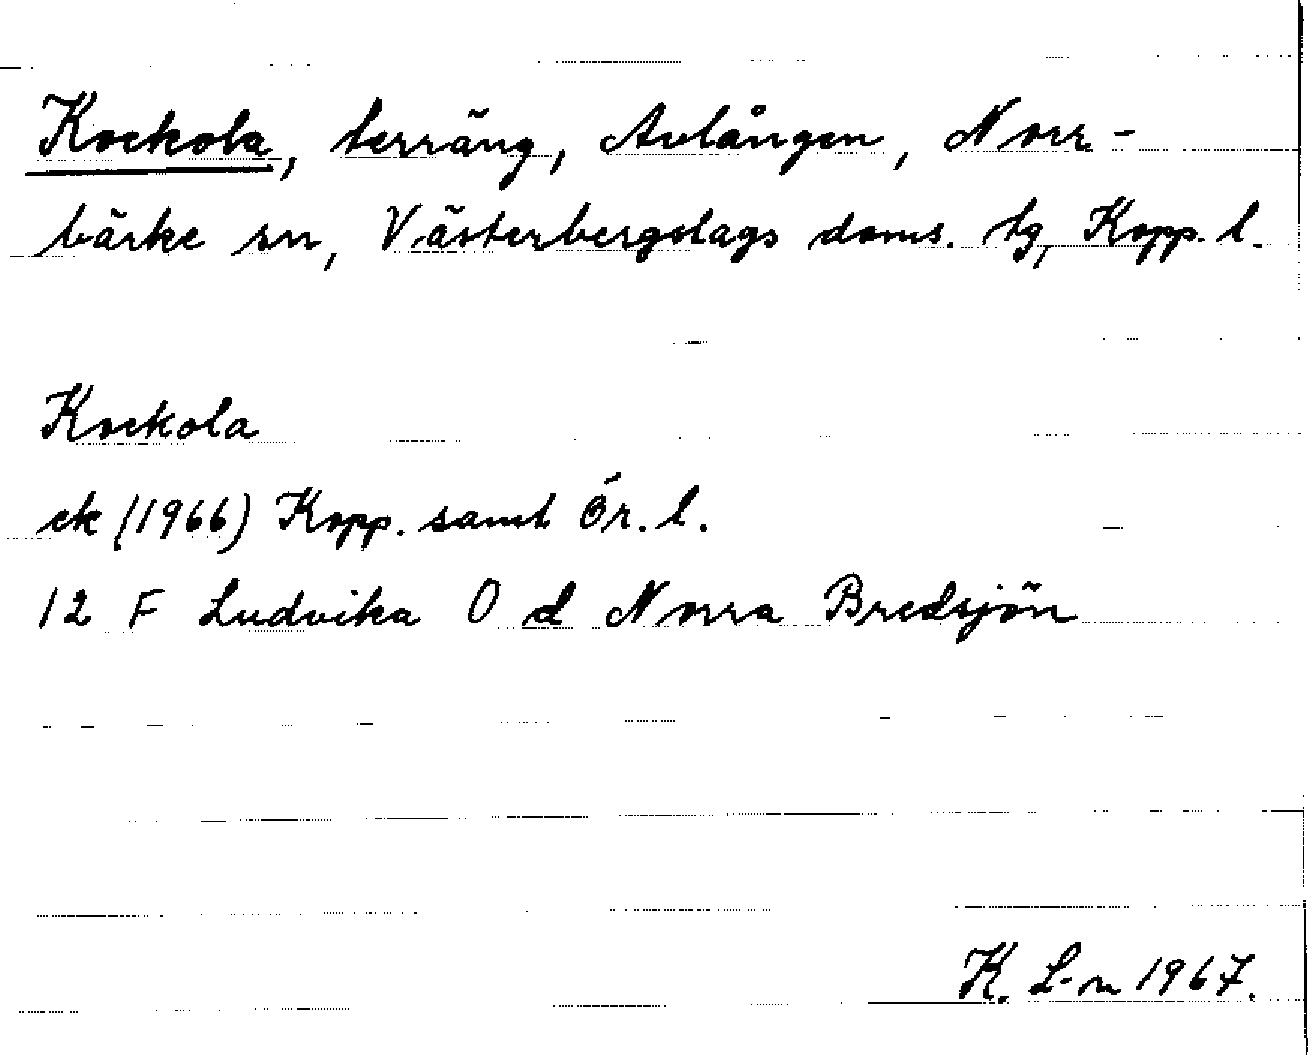 Kockola, terräng, Avlången, Norr-
bärke sn, Västerbergslags doms. tg, Kopp. l.
Kockola
ek (1966) Kopp. samt Ör. l.
12 F Ludvika 0 d Norra Bredsjön
K. L-n 1967.